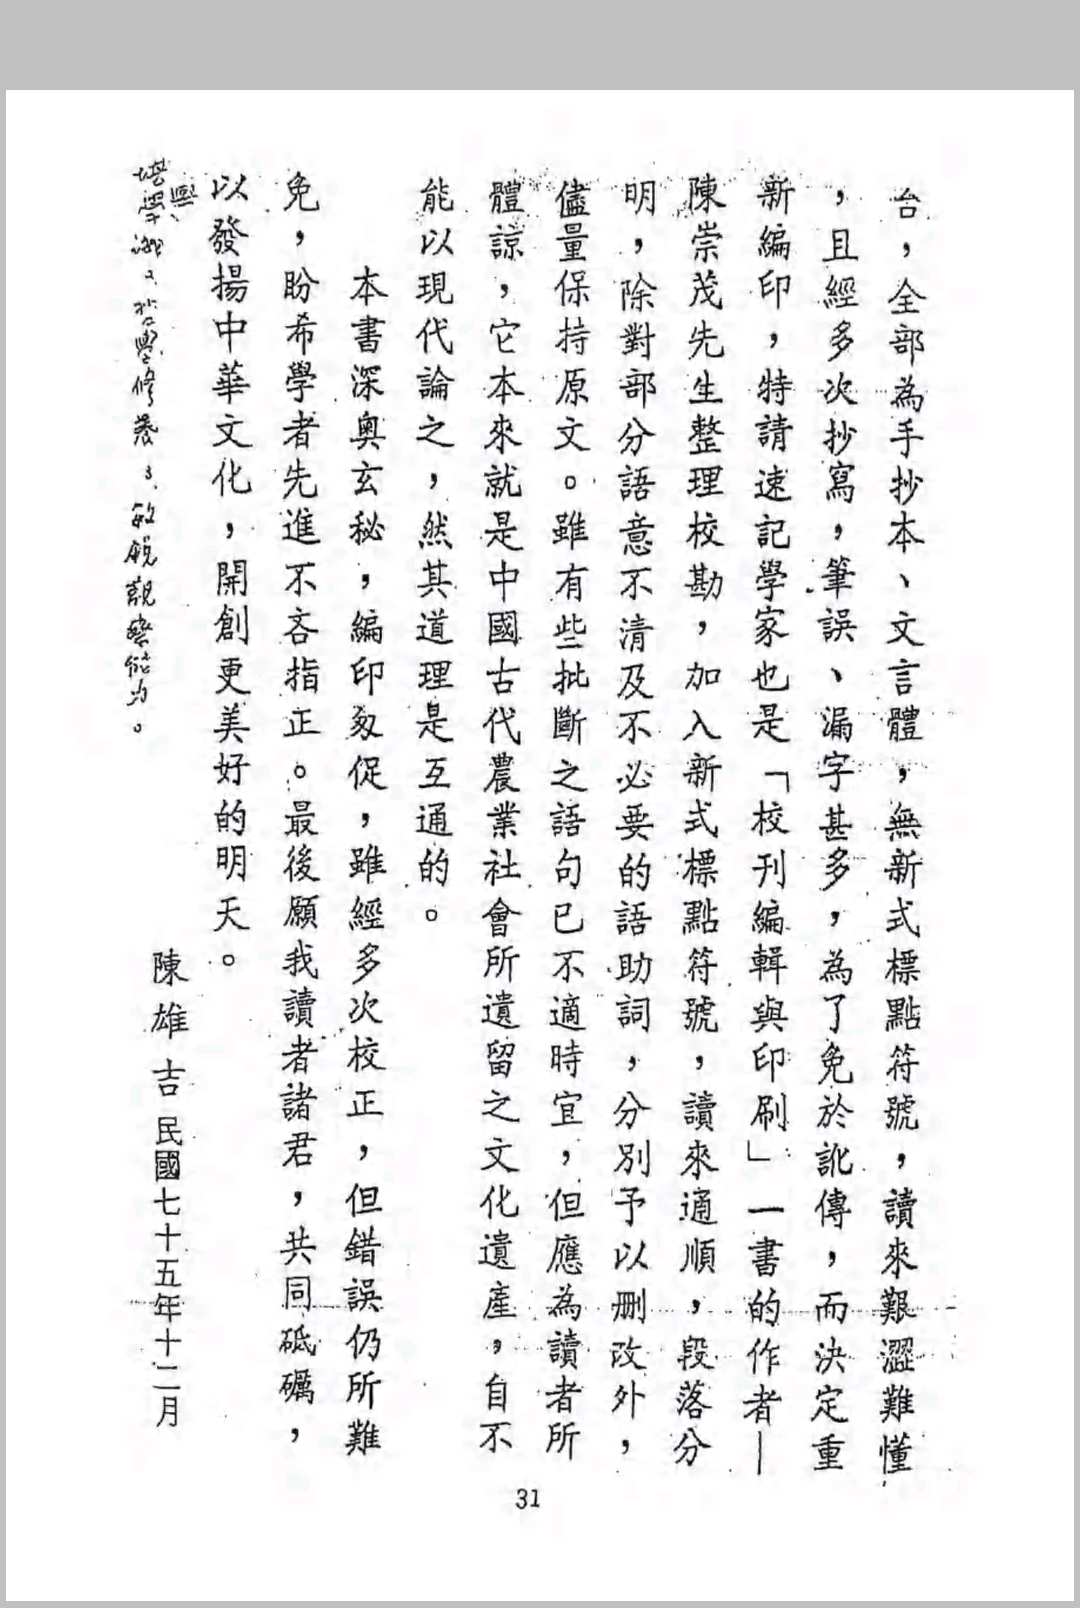 台，全部為手抄本、文言體，無新式標點符號，讀來艱澀難懂
，且經多次抄寫，筆誤、漏字甚多，為了免於訛傳，而決定重
新編印，特請速記學家也是「校刊編輯與印刷」一書的作者—
陳崇茂先生整理校勘，加入新式標點符號，讀來通順，段落分
明，除對部分語意不清及不必要的語助詞，分別予以刪改外，
儘量保持原文。雖有些批斷之語句已不適時宜，但應為讀者所
體諒，它本來就是中國古代農業社會所遺留之文化遺產，自不
能以現代論之，然其道理是互通的。
本書深奧玄秘，編印匆促，雖經多次校正，但錯誤仍所難
免，盼希學者先進不吝指正。最後願我讀者諸君，共同砥礪，
以發揚中華文化，開創更美好的明天。
陳雄吉 民國七十五年十二月
修養 3、敏銳觀察能力。
31